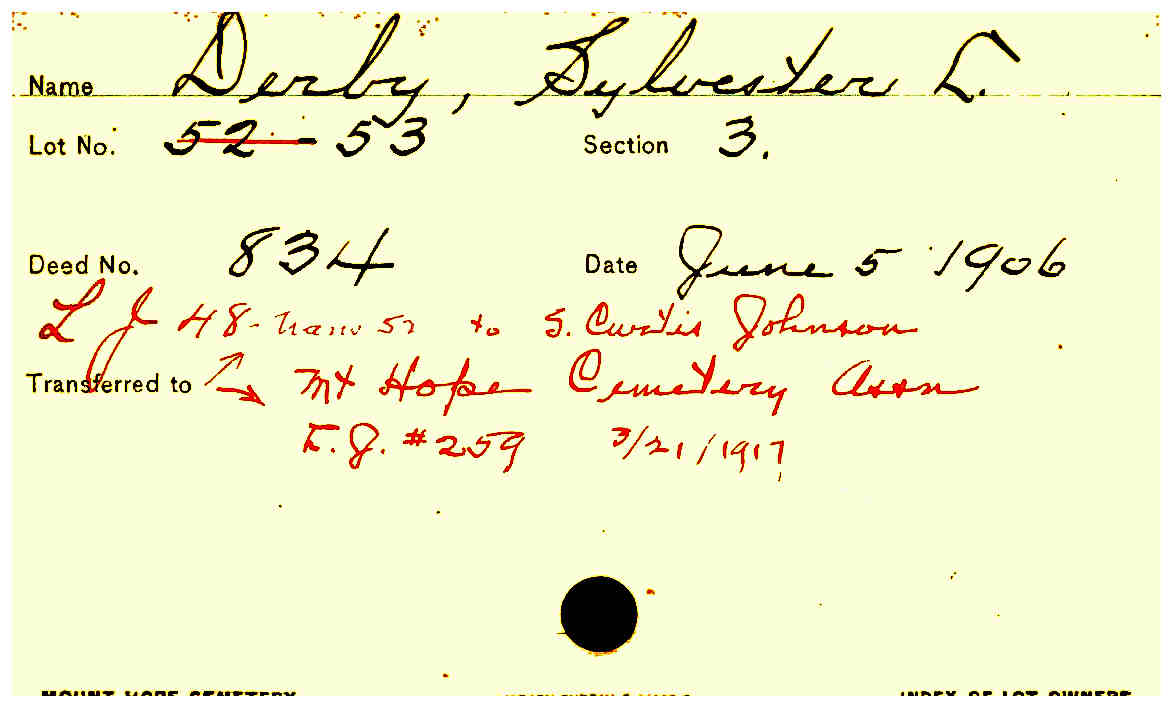 Name Derby, Sylvester L.
Lot No. 52 - 53 Section 3.
Deed No. 834 Date June 5 1906
L J 48 - trans 52 to S. Curtis Johnson
Transferred to Mt Hope Cemetery Assn
L. J. #259 3/21/1917
MOUNT HOPE CEMETERY INDEX OF LOT OWNERS